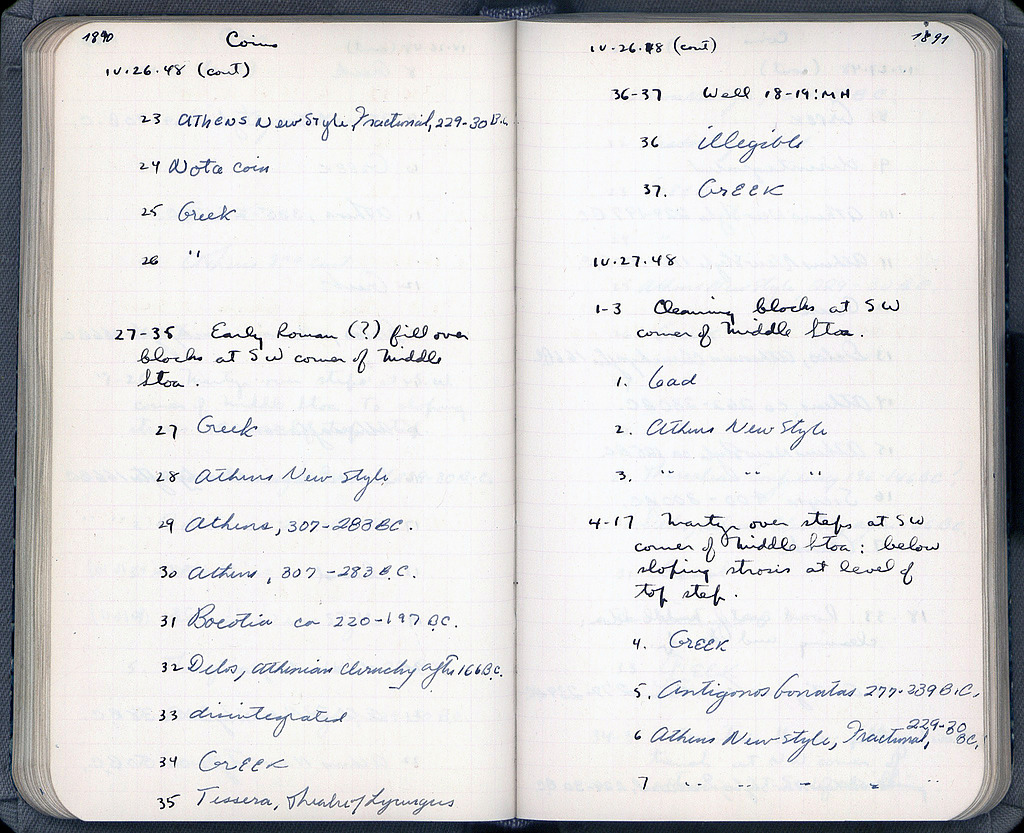 1890
Coins
IV.26.48 (cont)
23 ATHENS New Style, Fractional, 229-30 B.C.
24 Not a coin
25 Greek
26 "
27-35 Early Roman (?) fill over
blocks at SW corner of Middle
Stoa.
27 Greek
28 Athens New Style
29 Athens, 307-283 BC.
30 Athens, 307-283 B.C.
31 Boeotia ca 220-197 B.C.
32 Delos, Athenian cleruchy after 166 B.C.
33 disintegrated
34 GREEK
35 Tessera,
1891
IV.26.48 (cont)
36-37 Well 18-19:MH
36 illegible
37. GREEK
IV.27.48
1-3 Cleaning blocks at SW
corner of Middle Stoa.
1. bad
2. Athens New Style
3. " " "
4-17 Martyr over steps at SW
corner of Middle Stoa: below
sloping strosis at level of
top step.
4. GREEK
5. Antigonos Gonatas 277-239 B.C.
6 Athens New Style, Fractional, 229-30 BC.
7 " " " " "